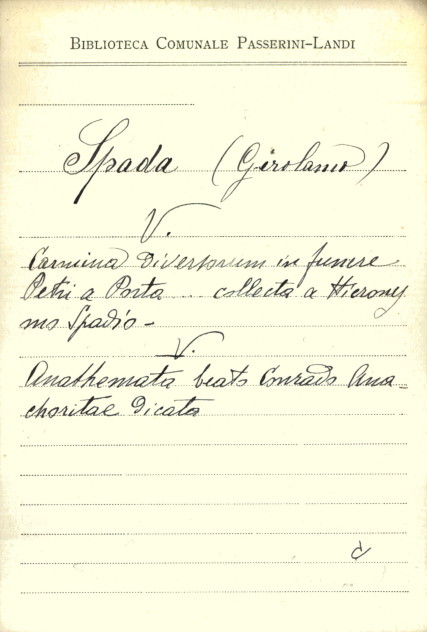 BIBLIOTECA COMUNALE PASSERINI-LANDI
Spada (Girolamo)
V.
Carmina Diversorum in funere
Petri a Porta .. collecta a Hierony
mo Spadio -
V.
Anathemata beato Conrado Ana-
choritae Dicata